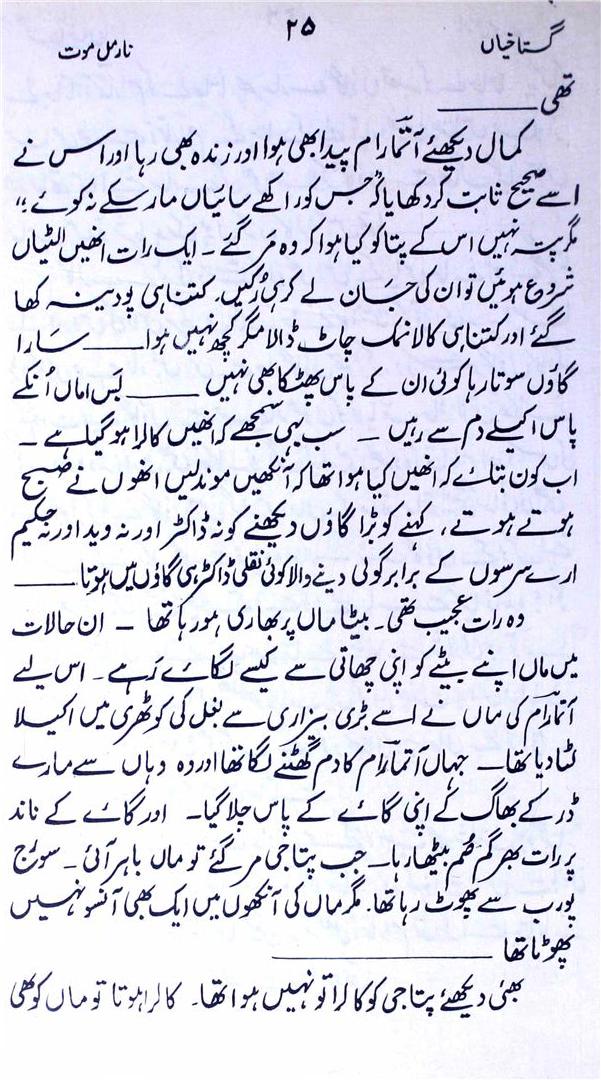 ۲۵
گستاخیاں
نارمل موت
تھی ــــــــ
کمال دیکھئے آتمارام پیدا بھی ہوا اور زندہ بھی رہا اور اس نے
اسے صحیح ثابت کر دکھایا کہ "جس کو راکھے سائیاں مار سکے نہ کوئے"
مگر پتہ نہیں اس کے پتا کو کیا ہوا کہ وہ مر گئے ۔ ایک رات انھیں الٹیاں
شروع ہوئیں تو ان کی جان لے کر ہی رُکیں، کتنا ہی پودینہ کھا
گئے اور کتنا ہی کالا نمک چاٹ ڈالا مگر کچھ نہیں ہوا ــــــــ سارا
گاؤں سوتا رہا کوئی ان کے پاس پھٹکا بھی نہیں ــــــــ بس اماں اُنکے
پاس اکیلے دم سے رہیں ۔ سب یہی سمجھے کہ انھیں کالرا ہو گیا ہے ۔
اب کون بتائے کہ انھیں کیا ہوا تھا کہ آنکھیں موندلیں انھوں نے صبح
ہوتے ہوتے، کہنے کو بڑا گاؤں دیکھنے کو نہ ڈاکٹر اور نہ وید اور نہ حکیم
ارے سرسوں کے برابر گولی دینے والا کوئی نقلی ڈاکٹر ہی گاؤں میں ہوتا ــــــــ
وہ رات عجیب تھی۔ بیٹا ماں پر بھاری ہو رہا تھا ۔ ان حالات
میں ماں اپنے بیٹے کو اپنی چھاتی سے کیسے لگائے رہے ۔ اس لیے
آتمارام کی ماں نے اسے بڑی بیزاری سے بغل کی کوٹھری میں اکیلا
لٹا دیا تھا ۔ جہاں آتمارام کا دم گھٹنے لگا تھا اور وہ وہاں سے مارے
ڈر کے بھاگ کے اپنی گائے کے پاس چلا گیا۔ اور گائے کے ناند
پر رات بھر گم صُم بیٹھا رہا۔ جب پتا جی مر گئے تو ماں باہر آئی ۔ سورج
پورب سے پھوٹ رہا تھا۔ مگر ماں کی آنکھوں میں ایک بھی آنسو نہیں
پھوٹا تھا ــــــــ
بھئی دیکھئے پتا جی کو کالرا تو نہیں ہوا تھا۔ کالرا ہوتا تو ماں کو بھی